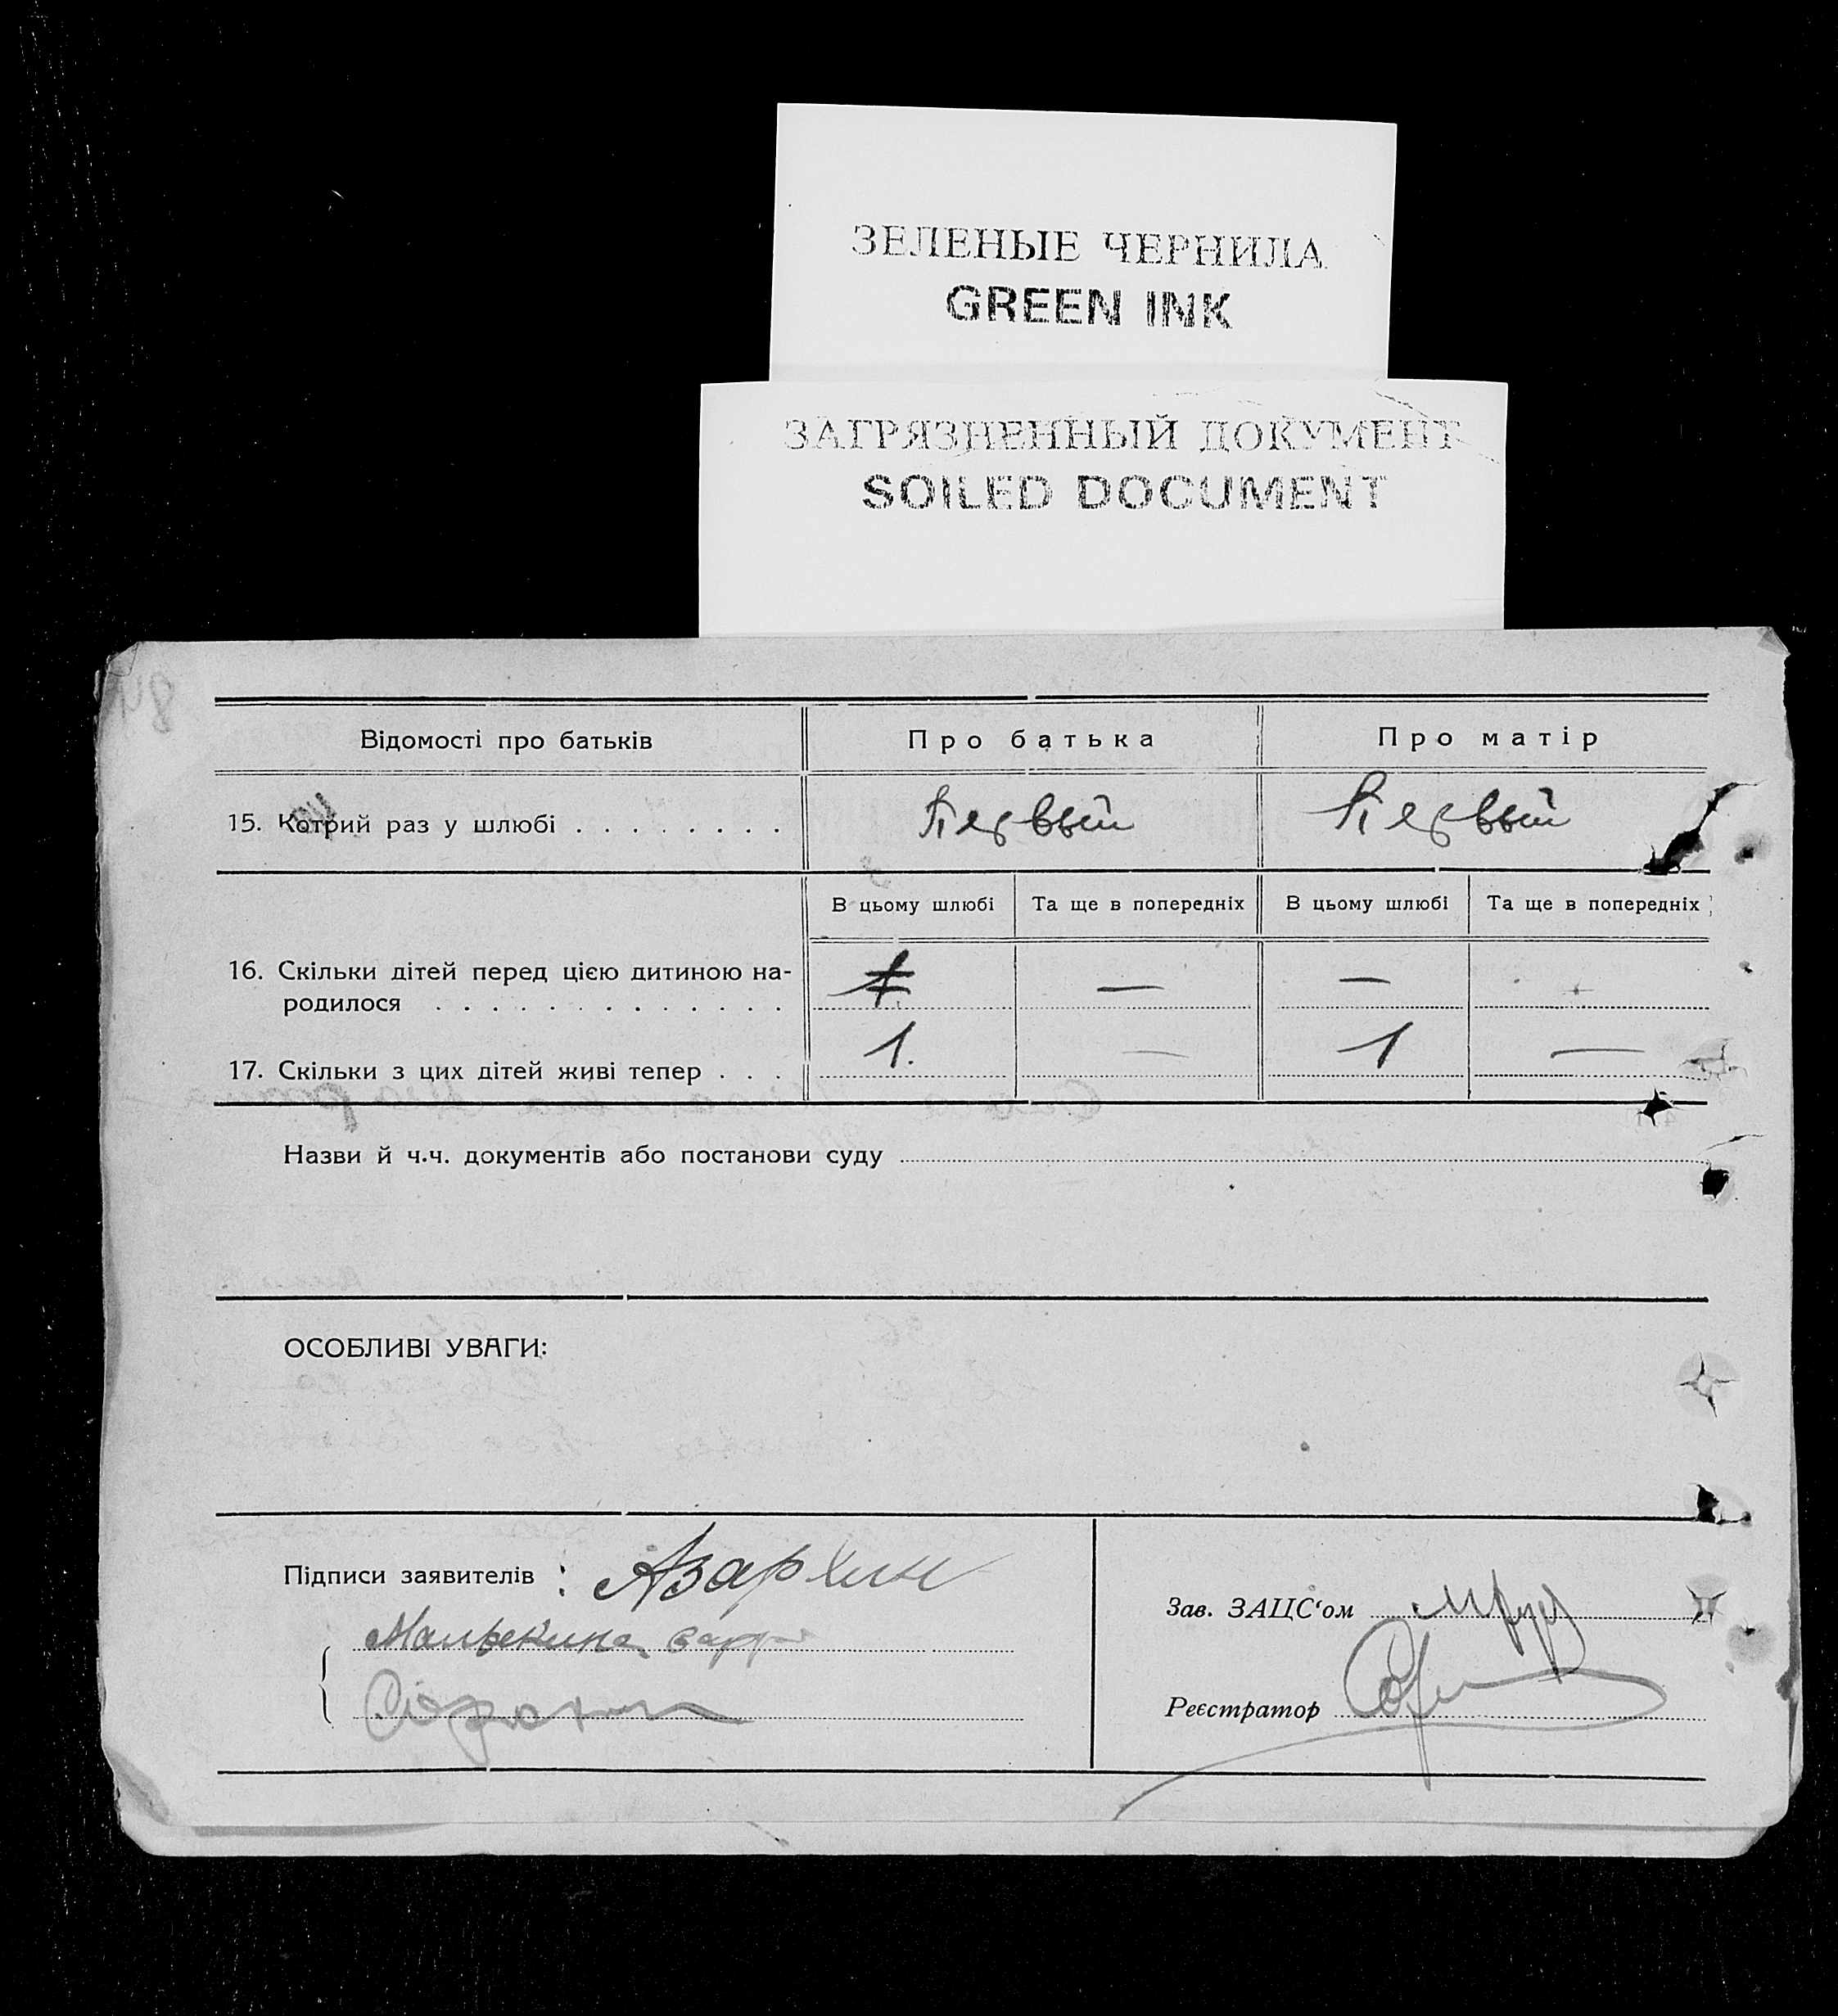 ЗЕЛЕНЫЕ ЧЕРНИЛА
GREEN INK
ЗАГРЯЗНЕННЫЙ ДОКУМЕНТ
SOILED DOCUMENT
Відомості про батьків Про батька Про матір
15. Котрий раз у шлюбі . . . . . . . . Первый Первый
В цьому шлюбі Та ще в попередніх В цьому шлюбі Та ще в попередніх
16. Скільки дітей перед цією дитиною на- 1 — —
родилося . . . . . . . . . . . . .
17. Скільки з цих дітей живі тепер . . . 1. — 1 —
Назви й ч.ч. документів або постанови суду
ОСОБЛИВІ УВАГИ:
Підписи заявителів : Азархин
Зав. ЗАЦС‘ом
Реєстратор